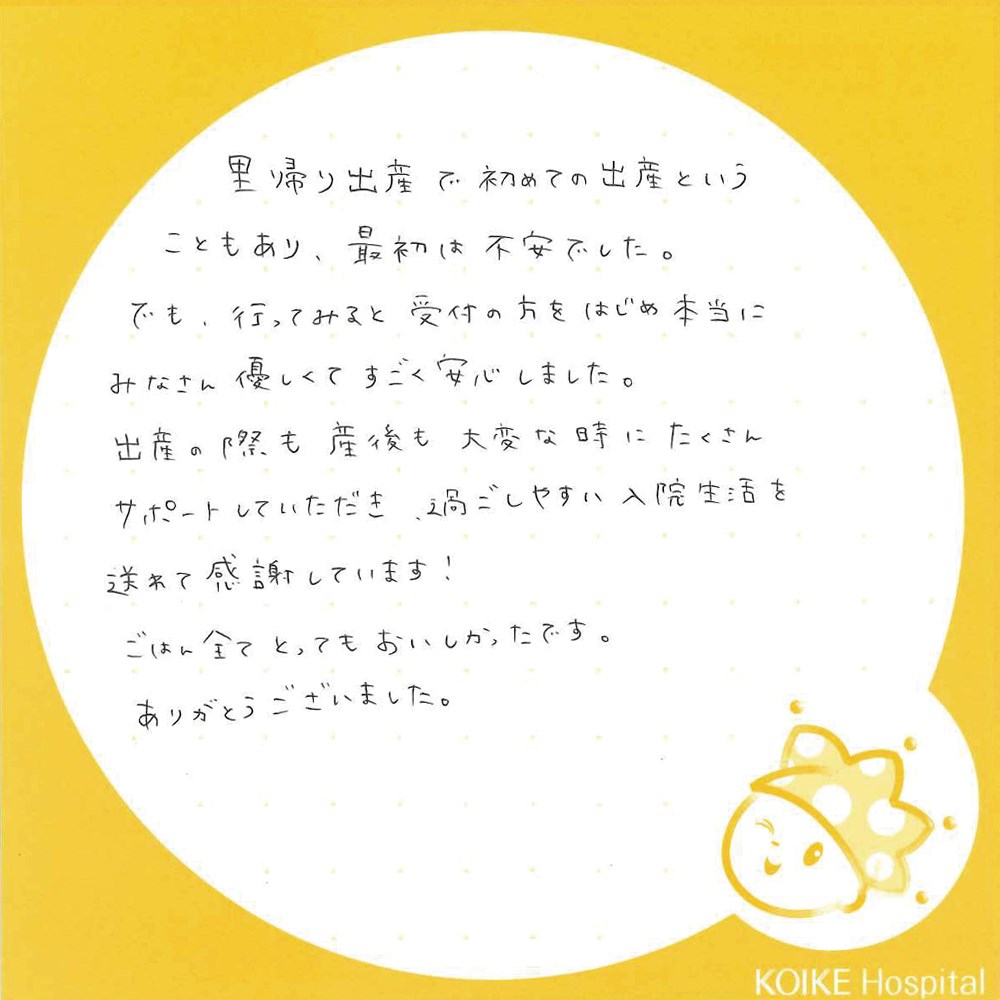 里帰り出産で初めての出産という
こともあり、最初は不安でした。
でも、行ってみると受付の方をはじめ本当に
みなさん優しくてすごく安心しました。
出産の際も産後も大変な時にたくさん
サポートしていただき、過ごしやすい入院生活を
送れて感謝しています!
ごはん全てとってもおいしかったです。
ありがとうございました。
KOIKE Hospital